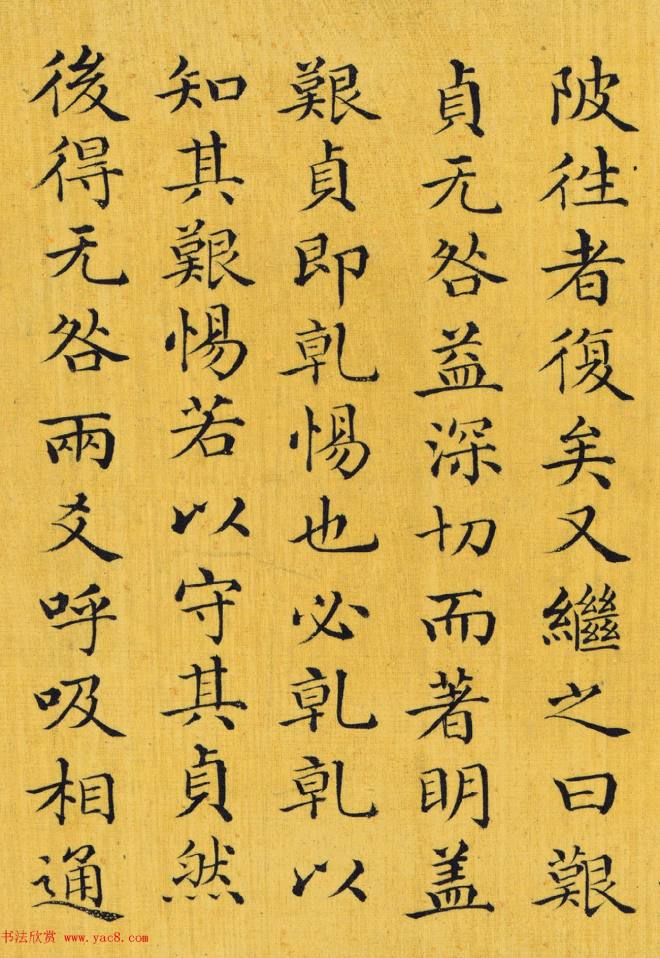 陂徃者復矣又繼之曰艱
貞无咎益深切而著明盖
艱貞即乹惕也必乹乹以
知其艱惕若以守其貞然
後得无咎兩爻呼吸相通
书法欣赏 www.yac8.com